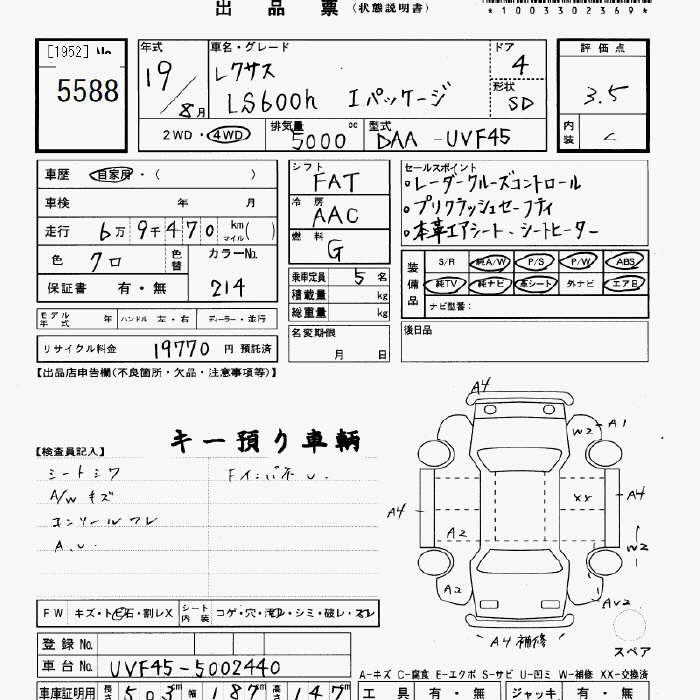 出品票(状態説明書)
*1003302369*
[1952] No
5588
年式
19/8月
車名・グレード
レクサス
LS600h Iパッケージ
ドア
4
形状
SD
評価点
3.5
内装
C
2WD・4WD
排気量 5000 cc
型式 DAA-UVF45
車歴 自家用・( )
車検 年 月
走行 6万9千470 km マイル( )
色 クロ 色替
カラーNo. 214
保証書 有・無
シフト
FAT
冷房
AAC
燃料
G
乗車定員 5名
積載量 kg
総重量 kg
セールスポイント
・レーダークルーズコントロール
・プリクラッシュセーフティ
・本革エアシート、シートヒーター
装備品
S/R 純A/W P/S P/W ABS
純TV 純ナビ 革シート 外ナビ エアB
ナビ型番:
モデル年式 年 ハンドル 左・右 ディーラー・並行
名変期限
月 日
後日品
リサイクル料金 19770 円 預託済
【出品店申告欄(不良箇所・欠品・注意事項等)】
キー預り車輌
【検査員記入】
シートシワ
Fインパネ U.
A/W キズ
A.U.
A4
W2
A1
A4
XX
A4
A2
W2
A2
AW2
A4 補修
スペア
FW キズ・ト 石・割レX シート内装 コゲ・穴・ ・シミ・破レ・
登録No.
車台No. UVF45-5002440
A-キズ C-腐食 E-エクボ S-サビ U-凹ミ W-補修 XX-交換済
車庫証明用 長さ 503 cm 幅 187 cm 高さ 147 cm
工具 有・無 ジャッキ 有・無